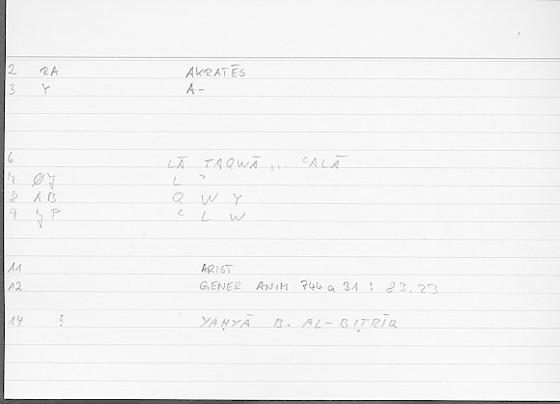 2 RA AKRATĒS
3 Y A-
6 LĀ TAQWĀ ... ʿALĀ
7 ØJ L ʾ
8 AB Q W Y
9 JP ʿ L W
11 ARIST
12 GENER ANIM 744a31 : 83.23
14 ? YAḤYĀ B. AL-BIṬRĪQ